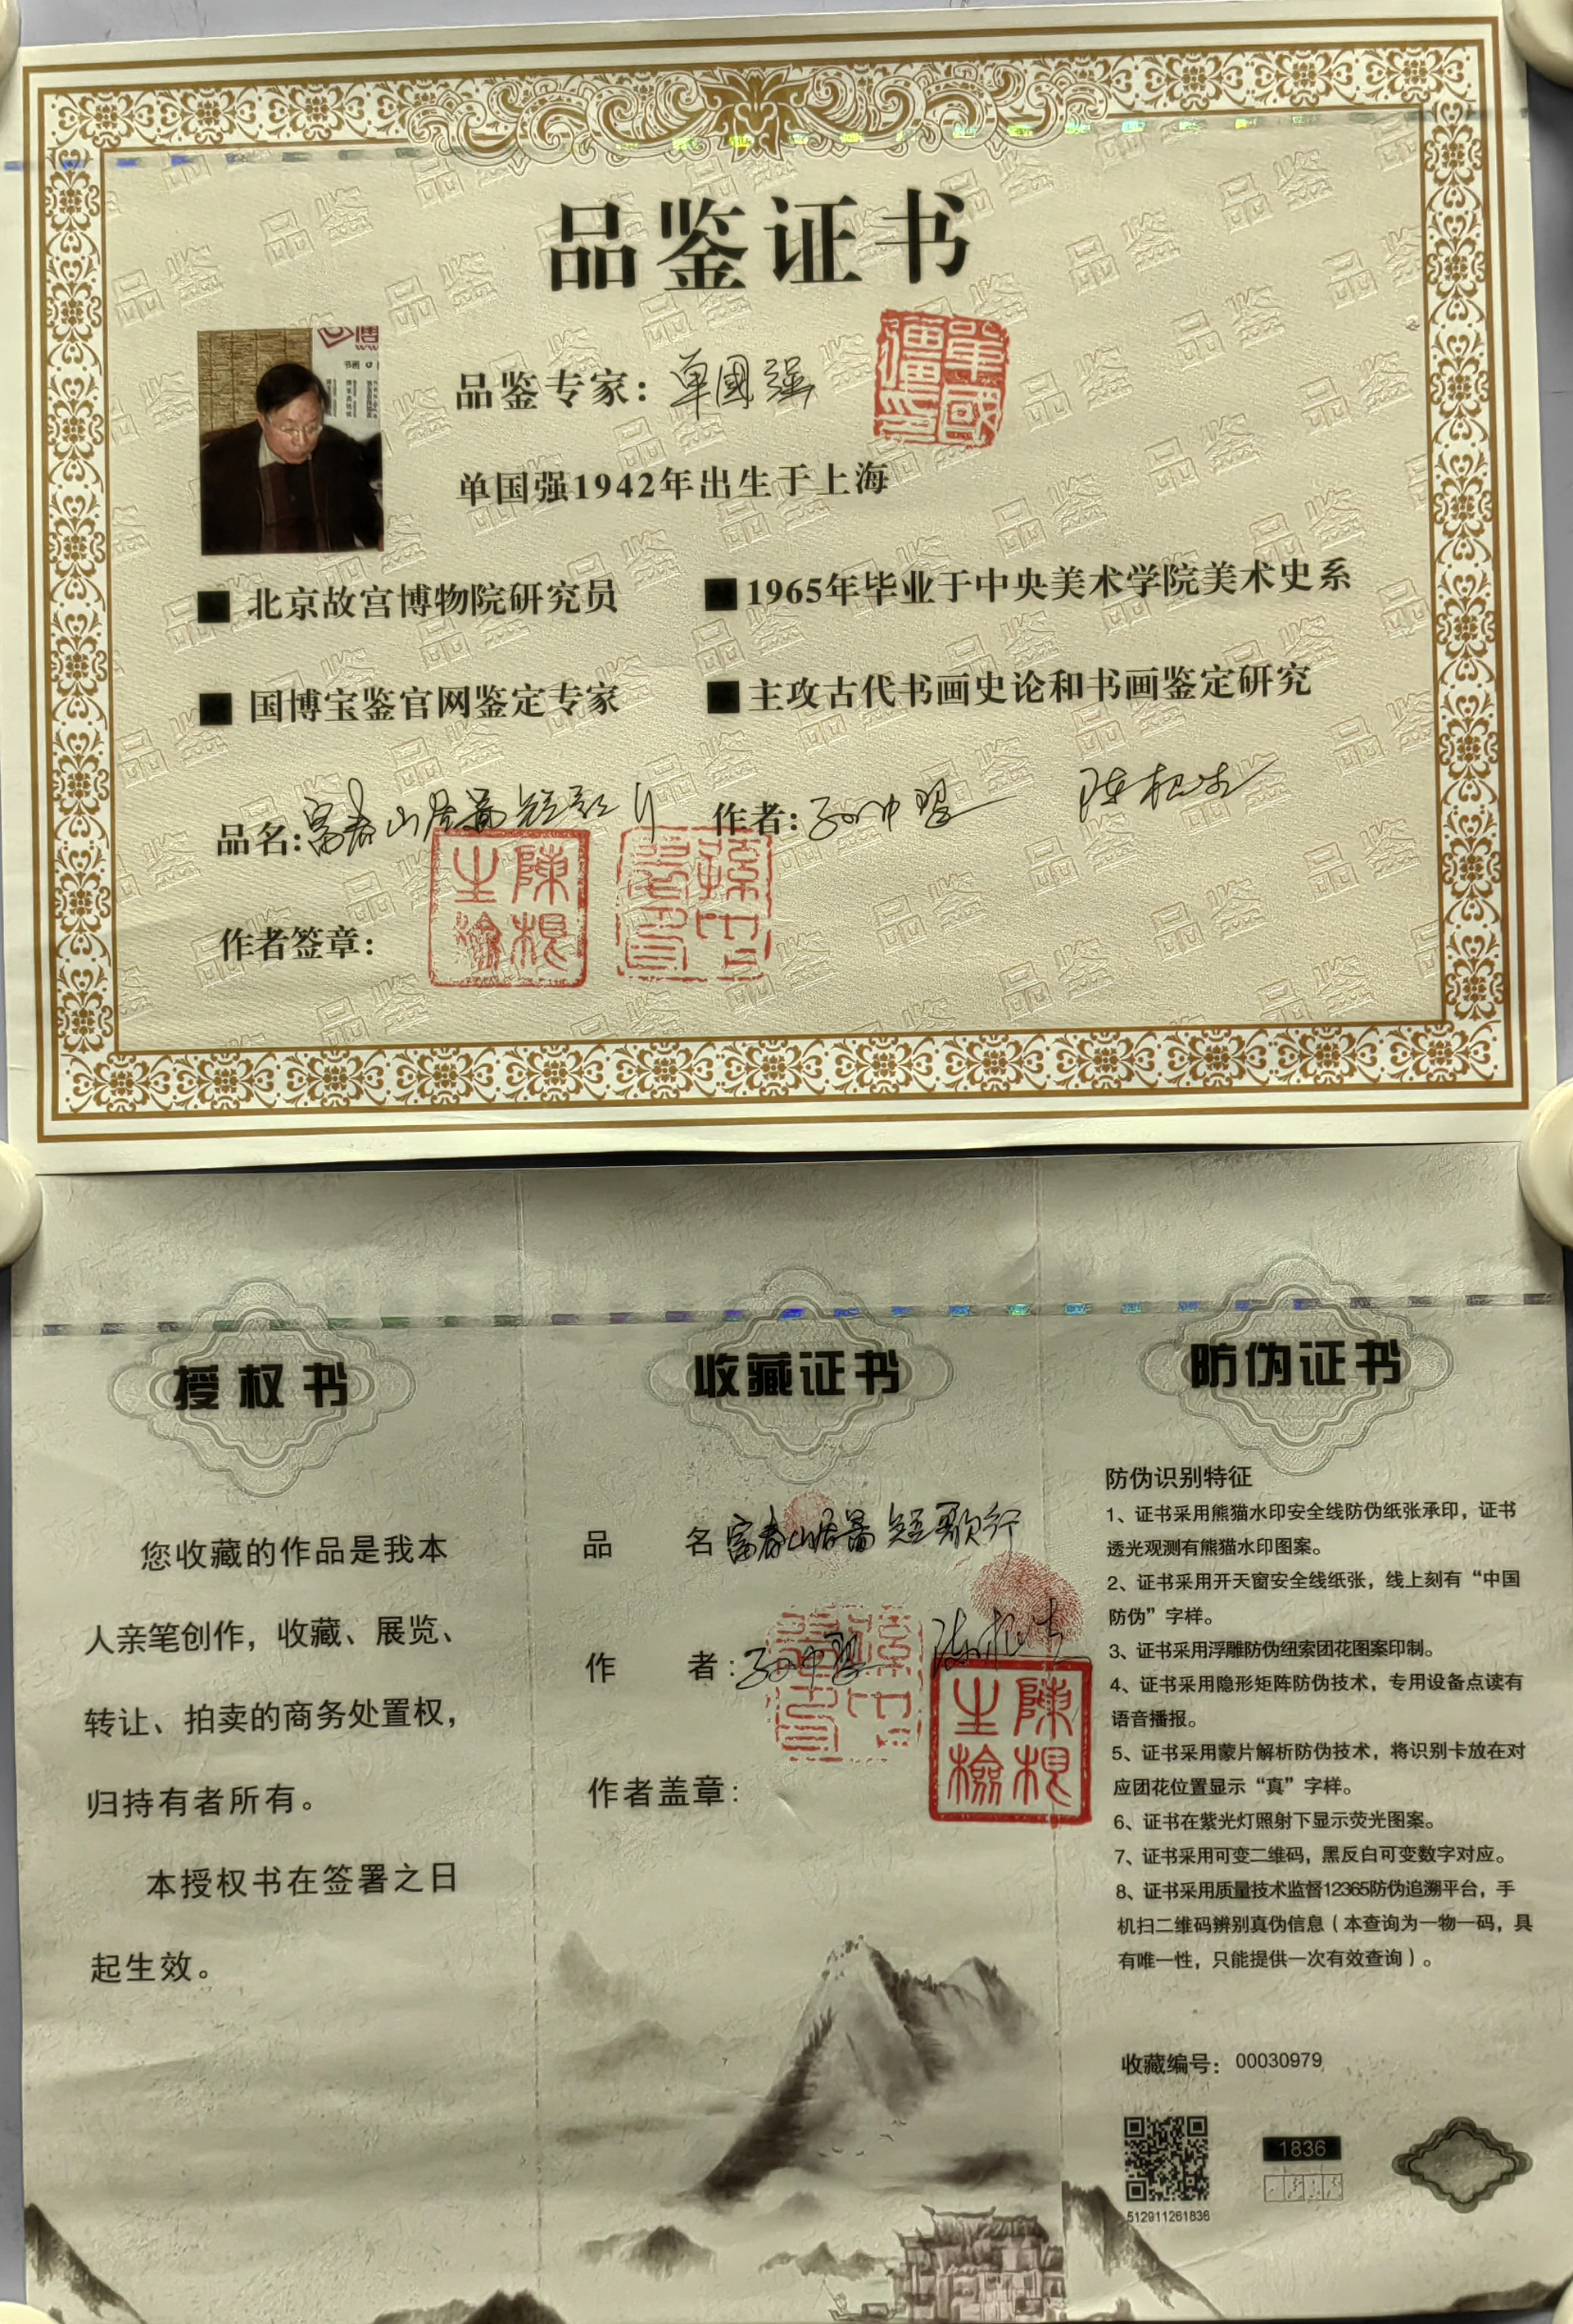 品鉴证书
品鉴专家：单國强
单国强1942年出生于上海
■ 北京故宫博物院研究员
■ 1965年毕业于中央美术学院美术史系
■ 国博宝鉴官网鉴定专家
■ 主攻古代书画史论和书画鉴定研究
品名：富春山居图 短歌行
作者：孙中望 陈根生
作者签章：
陳根生檢
授权书
您收藏的作品是我本
人亲笔创作，收藏、展览、
转让、拍卖的商务处置权，
归持有者所有。
本授权书在签署之日
起生效。
收藏证书
品 名 富春山居图 短歌行
作 者：
陳根生檢
作者盖章：
防伪证书
防伪识别特征
1、证书采用熊猫水印安全线防伪纸张承印，证书
透光观测有熊猫水印图案。
2、证书采用开天窗安全线纸张，线上刻有“中国
防伪”字样。
3、证书采用浮雕防伪纽索团花图案印制。
4、证书采用隐形矩阵防伪技术，专用设备点读有
语音播报。
5、证书采用蒙片解析防伪技术，将识别卡放在对
应团花位置显示“真”字样。
6、证书在紫光灯照射下显示荧光图案。
7、证书采用可变二维码，黑反白可变数字对应。
8、证书采用质量技术监督12365防伪追溯平台，手
机扫二维码辨别真伪信息（本查询为一物一码，具
有唯一性，只能提供一次有效查询）。
收藏编号：00030979
1836
512911261836